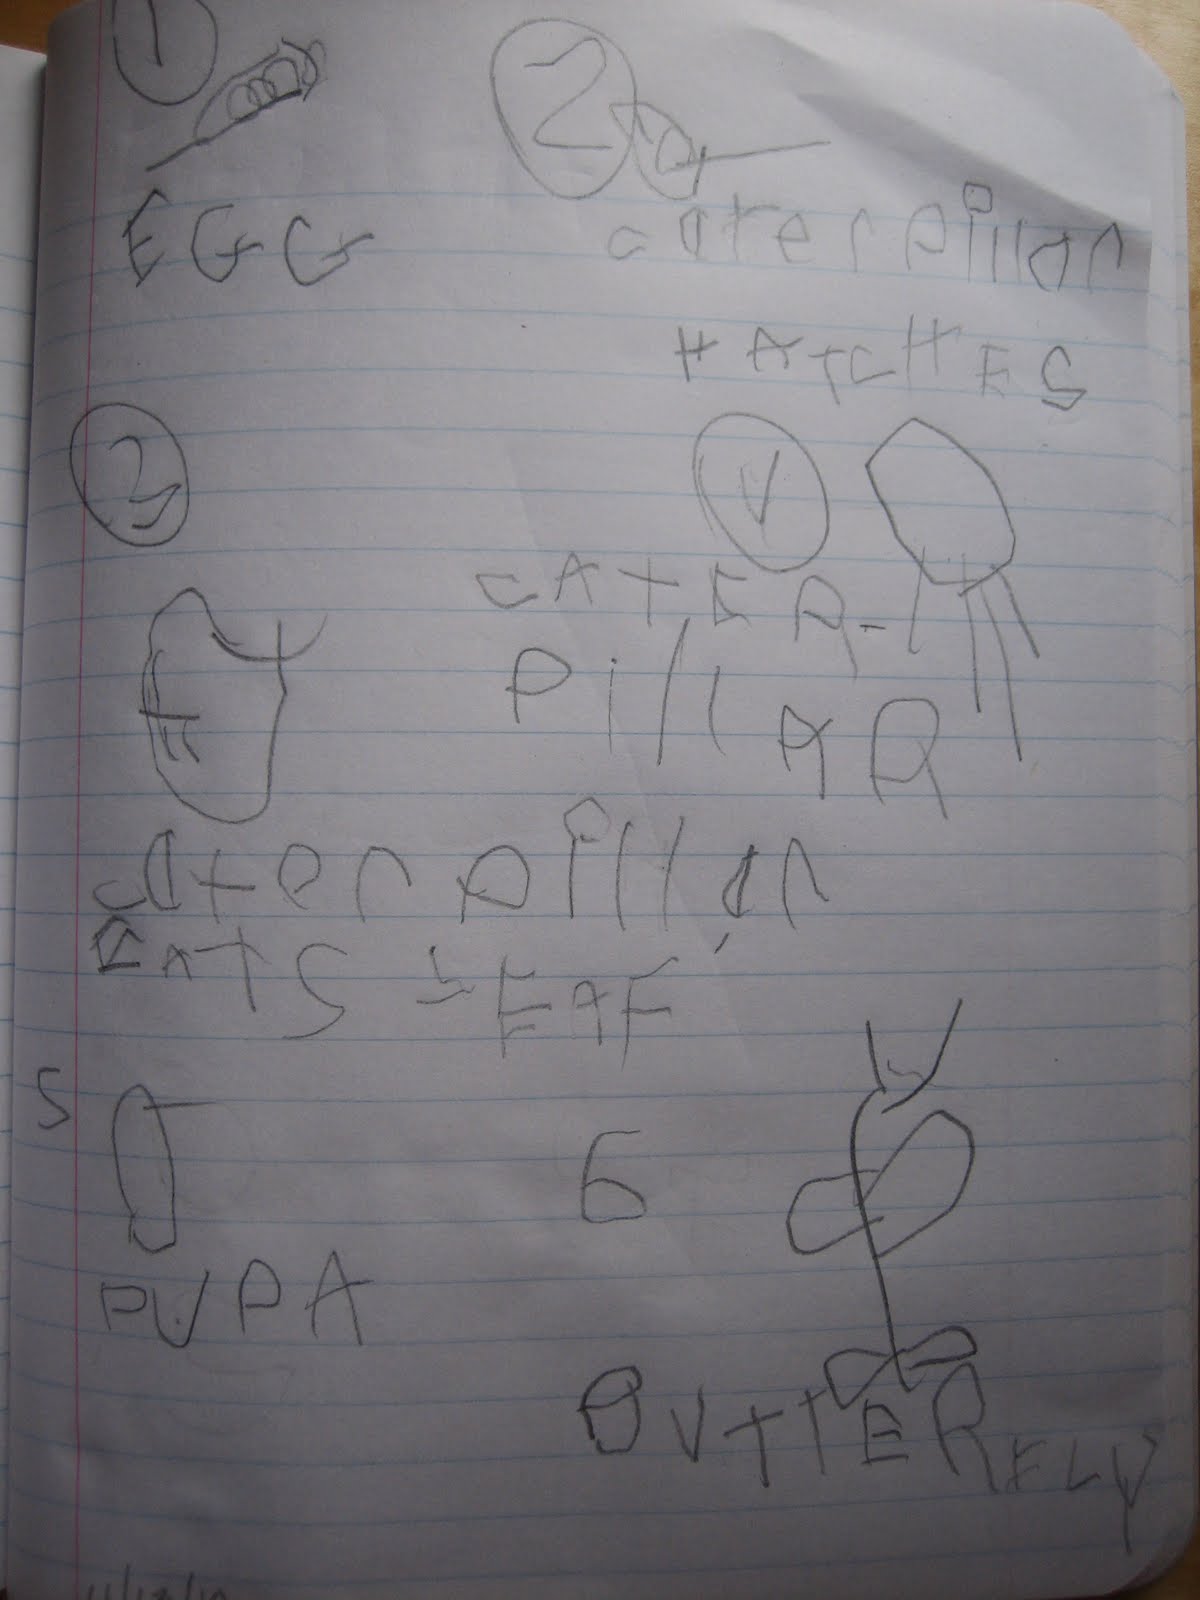 1
2
EGG
caterpillar
HATCHES
3
4
CATER-
PillAR
caterpillar
EATS LEAF
5
6
PUPA
BUTTERFLY